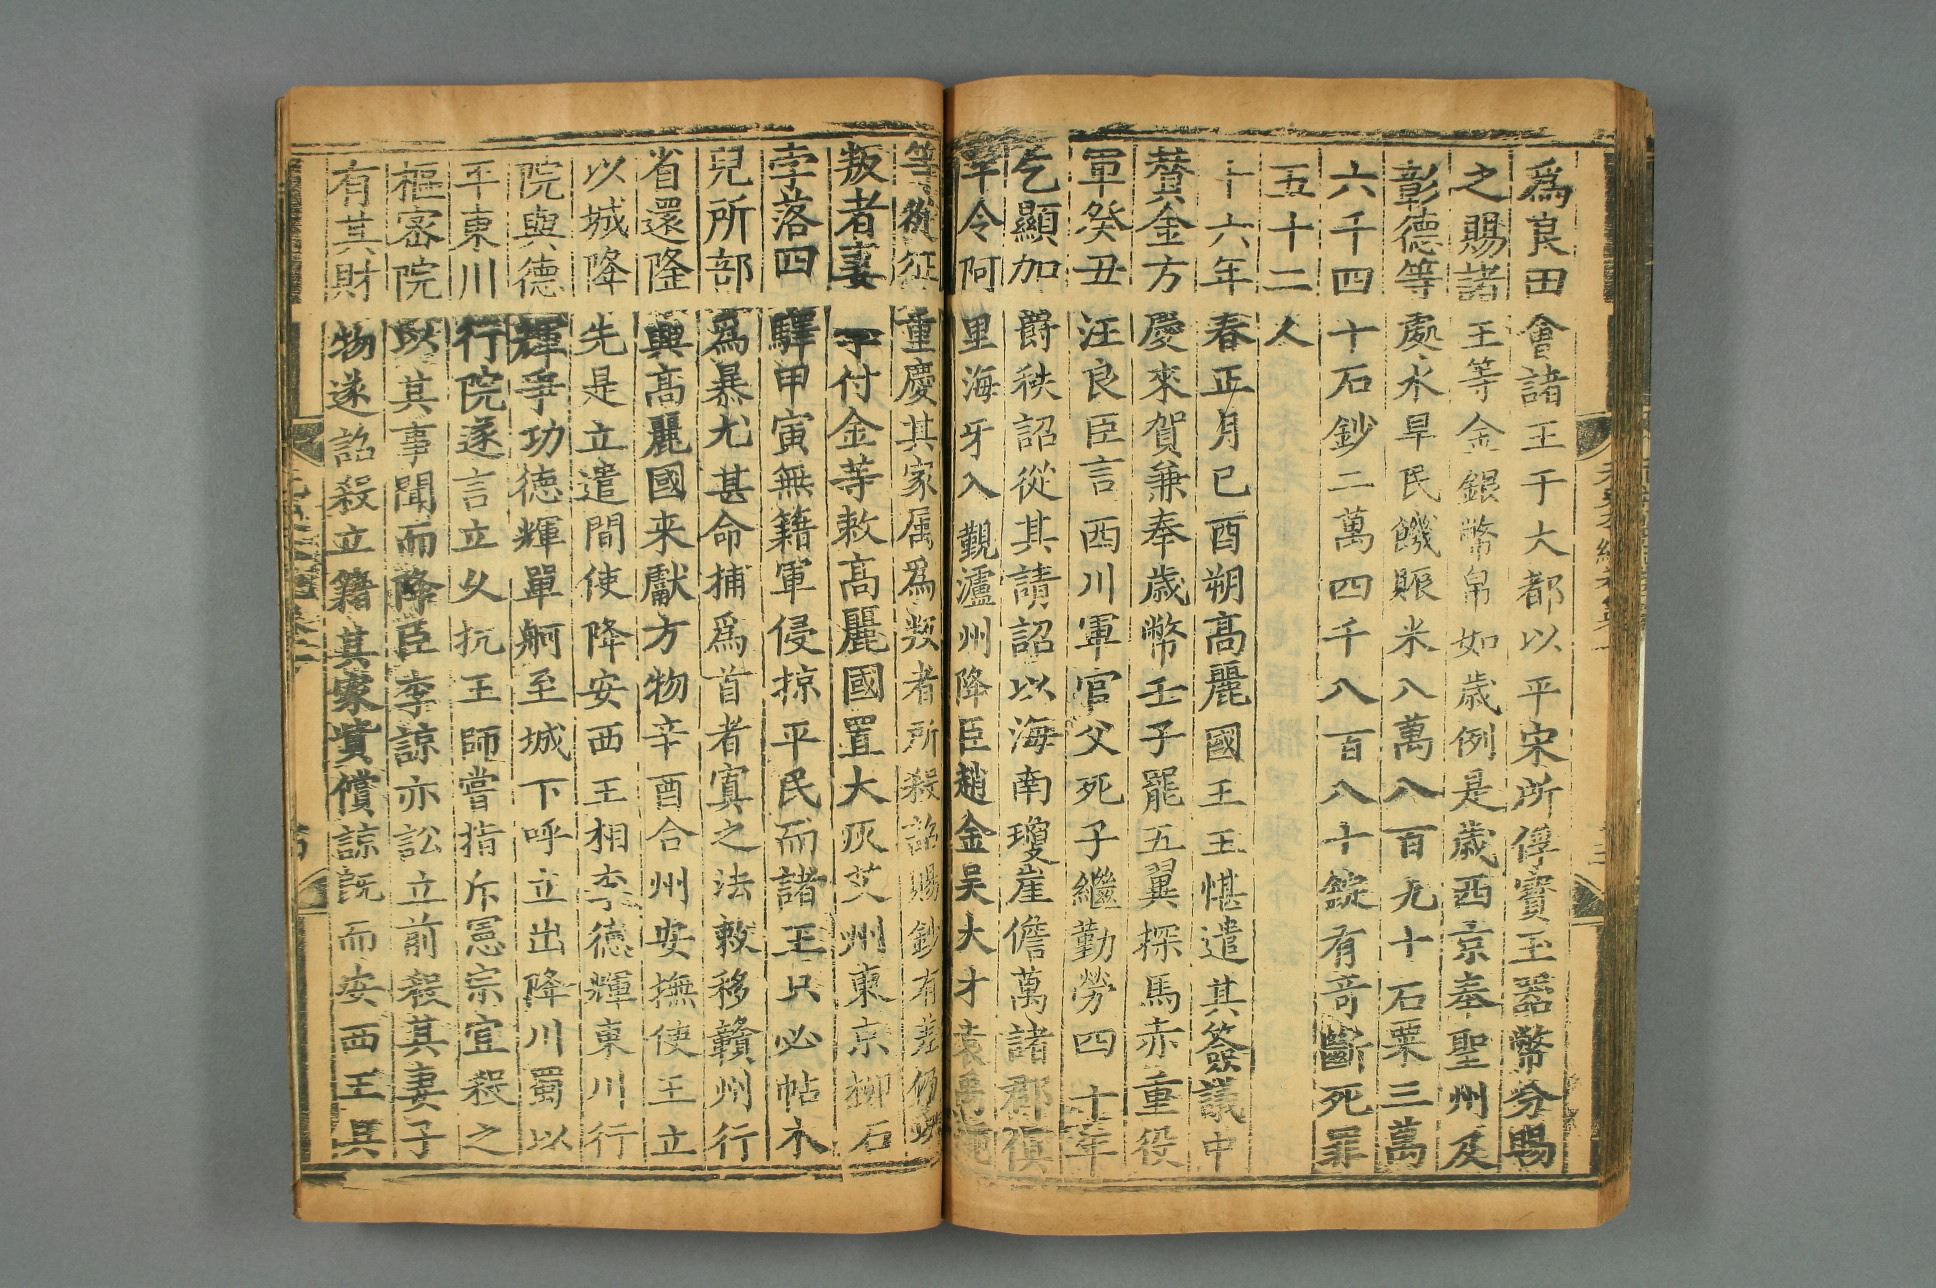 爲良田會諸王于大都以平宋所俘寳玉噐幣分賜
之賜諸王等金銀幣帛如歳例是歳西京奉聖州及
彰德等處水旱民饑賑米八萬八百九十石粟三萬
六千四十石鈔二萬四千八百八十錠有竒斷死罪
五十二人
十六年春正月己酉朔髙麗國王王愖遣其簽議中
賛金方慶來賀兼奉歳幣壬子罷五翼探馬赤重役
軍癸丑汪良臣言西川軍官父死子繼勤勞四十年
乞顯加爵秩詔從其請詔以海南瓊崖儋萬諸郡俱
平令阿里海牙入覲瀘州降臣趙金吴大才袁禹繩
等從征重慶其家属爲叛者所殺詔賜鈔有差仍以
叛者妻子付金等敕髙麗國置大灰艾州東京柳石
孛落四驛甲寅無籍軍侵掠平民而諸王只必帖木
兒所部爲暴尤甚命捕爲首者寘之法敕移贛州行
省還隆興髙麗國来獻方物辛酉合州安撫使王立
以城降先是立遣間使降安西王相李德輝東川行
院與德輝爭功德輝單舸至城下呼立出降川蜀以
平東川行院遂言立久抗王師嘗指斥憲宗宜殺之
樞密院以其事聞而降臣李諒亦訟立前殺其妻子
有其財物遂詔殺立籍其家貲償諒旣而安西王具